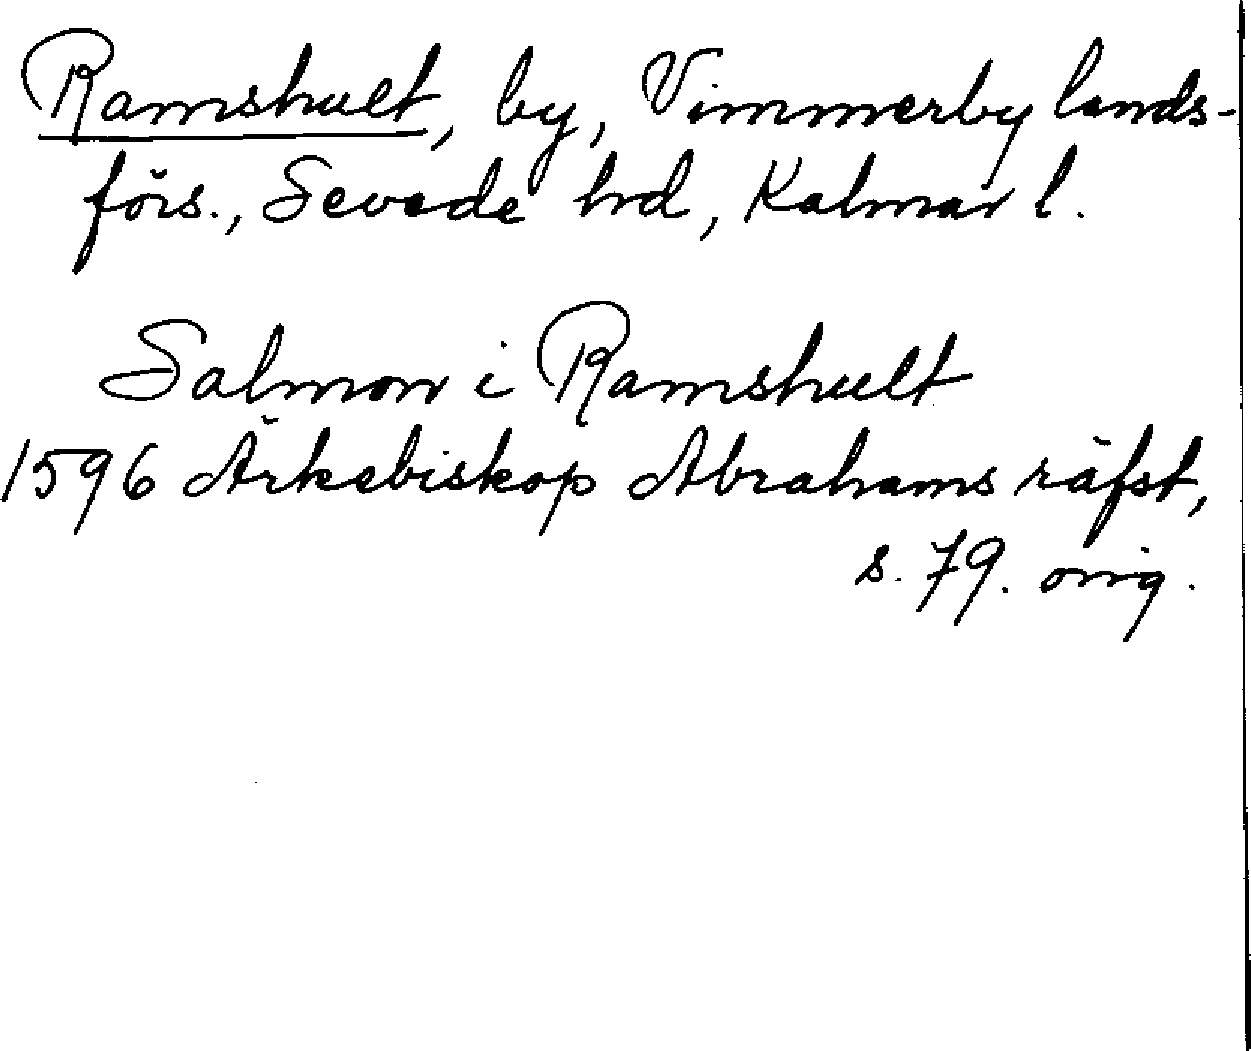 Ramshult, by, Vimmerby lands-
förs., Sevede hd, Kalmar l.
Salmon i Ramshult
1596 Ärkebiskop Abrahams räfst,
s. 79. orig.